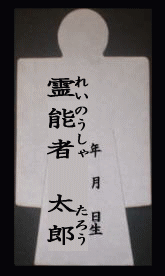 年　月　日生
れいのうしゃ　たろう
霊能者　太郎